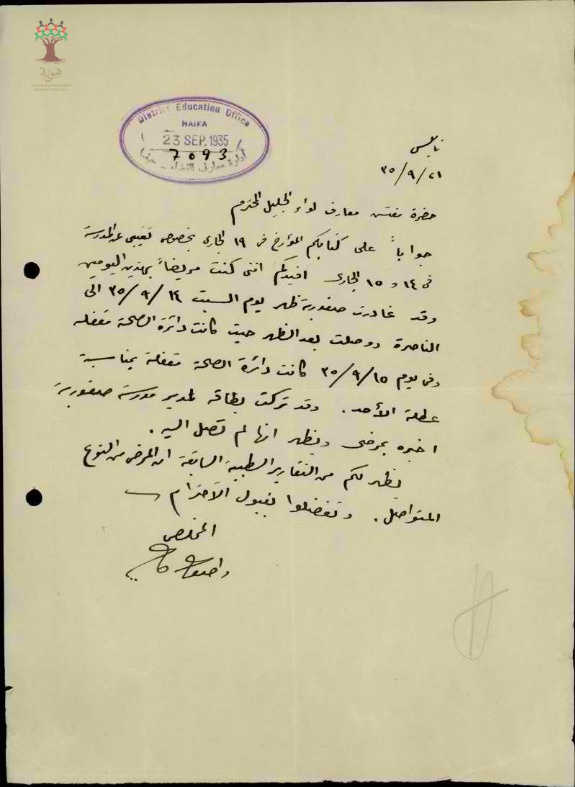 هوية
District Education Office
HAIFA
23 SEP. 1935
7093
ادارة معارف القضاء - حيفا
نابلس
٣٥/٩/٢١
حضرة مفتش معارف لواء الجليل المحترم
جواباً على كتابكم المؤرخ في ١٩ الجاري بخصوص تغيبي عن المدرسة
في ١٤ و ١٥ الجاري افيدكم انني كنت مريضاً بهذين اليومين
وقد غادرت صفورية ظهر يوم السبت ٣٥/٩/١٤ الى
الناصرة ووصلت بعد الظهر حيث كانت دائرة الصحة مقفلة
وفي يوم ٣٥/٩/١٥ كانت دائرة الصحة مقفلة بمناسبة
عطلة الأحد. وقد تركت بطاقة لمدير مدرسة صفورية
اخبره بمرضي ويظهر انها لم تصل اليه.
يظهر لكم من التقارير الطبية السابقة ان المرض من النوع
المتواصل. وتفضلوا بقبول الاحترام
المخلص